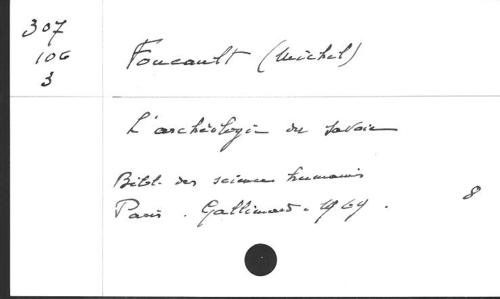 307
106
3
Foucault (Michel)
L'archéologie du savoir
Bibl. des sciences humaines
Paris . Gallimard . 1969 .
8